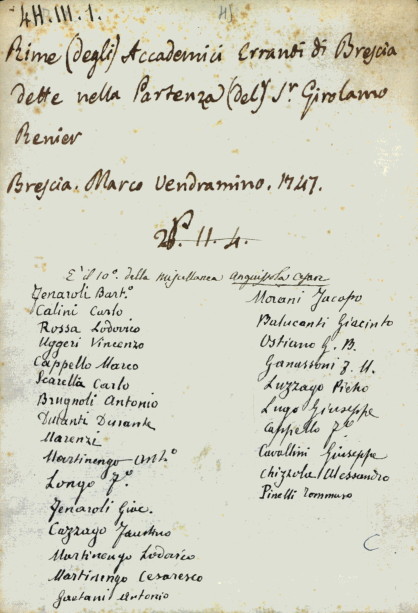 4H.III.1.
Rime (degli) Accademici Erranti di Brescia
dette nella Partenza (del) Sr. Girolamo
Renier
Brescia. Marco Vendramino. 1747.
II. 4.
È il 10°. della miscellanea
Jenaroli Bart.°
Calini Carlo
Rossa Lodovico
Uggeri Vincenzo
Cappello Marco
Scarella Carlo
Brugnoli Antonio
Duranti Durante
Marenzi
Martinengo Ant.°
Longo F.°
Jenaroli Giac.
Cazzago Faustino
Martinengo Lodovico
Martinengo Cesaresco
Gaetani Antonio
Morani Jacopo
Balucanti Giacinto
Ostiano G. B.
Ganassoni
Luzzago Pietro
Lugo Giuseppe
Cappello F.°
Cavallini Giuseppe
Chizzola Alessandro
Pinelli Tommaso